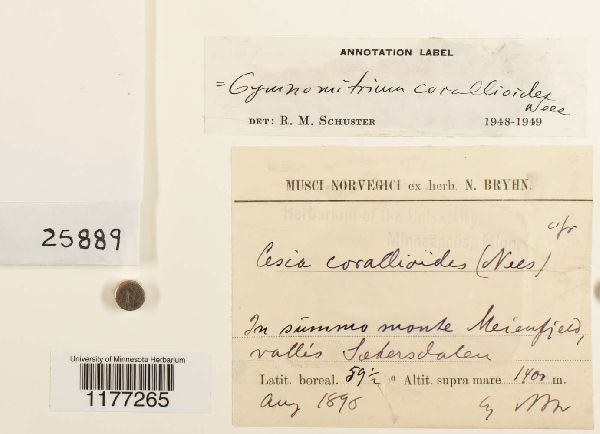 ANNOTATION LABEL
= Gymnomitrium corallioides
Nees
DET: R. M. SCHUSTER 1948-1949
MUSCI NORVEGICI ex herb. N. BRYHN.
Herbarium of the University
Minneapolis, Minn.
c/fr
Cesia corallioides (Nees)
25889
In summo monte Meienfjeld,
vallis Sætersdalen
Latit. boreal. 59½ ° Altit. supra mare 1400 m.
Aug 1896
University of Minnesota Herbarium
1177265